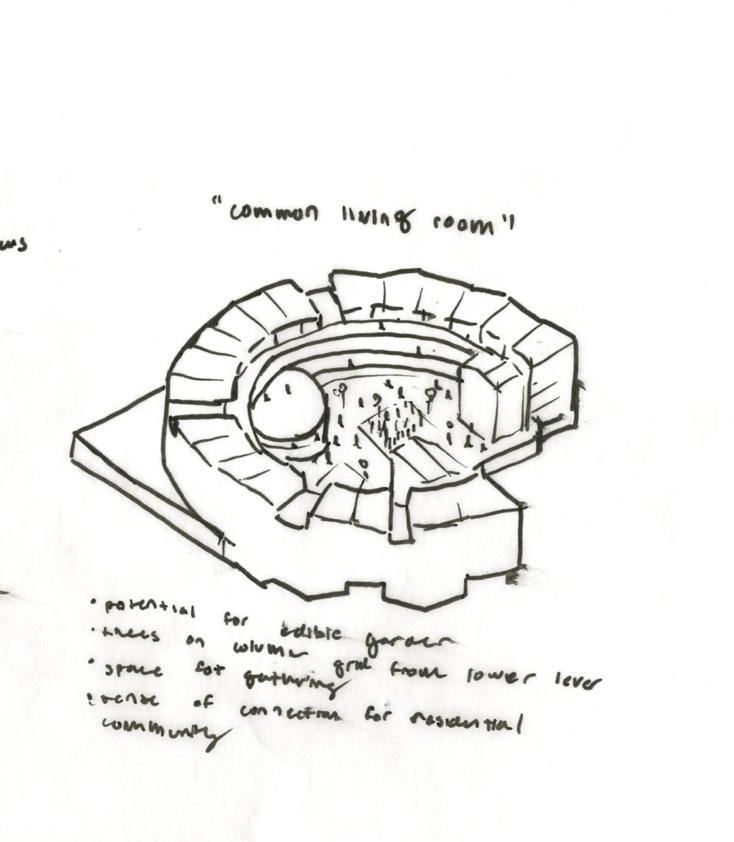 "common living room"
• potential for edible garden
• trees on column grid from lower level
• space for gathering
• sense of connection for residential
community